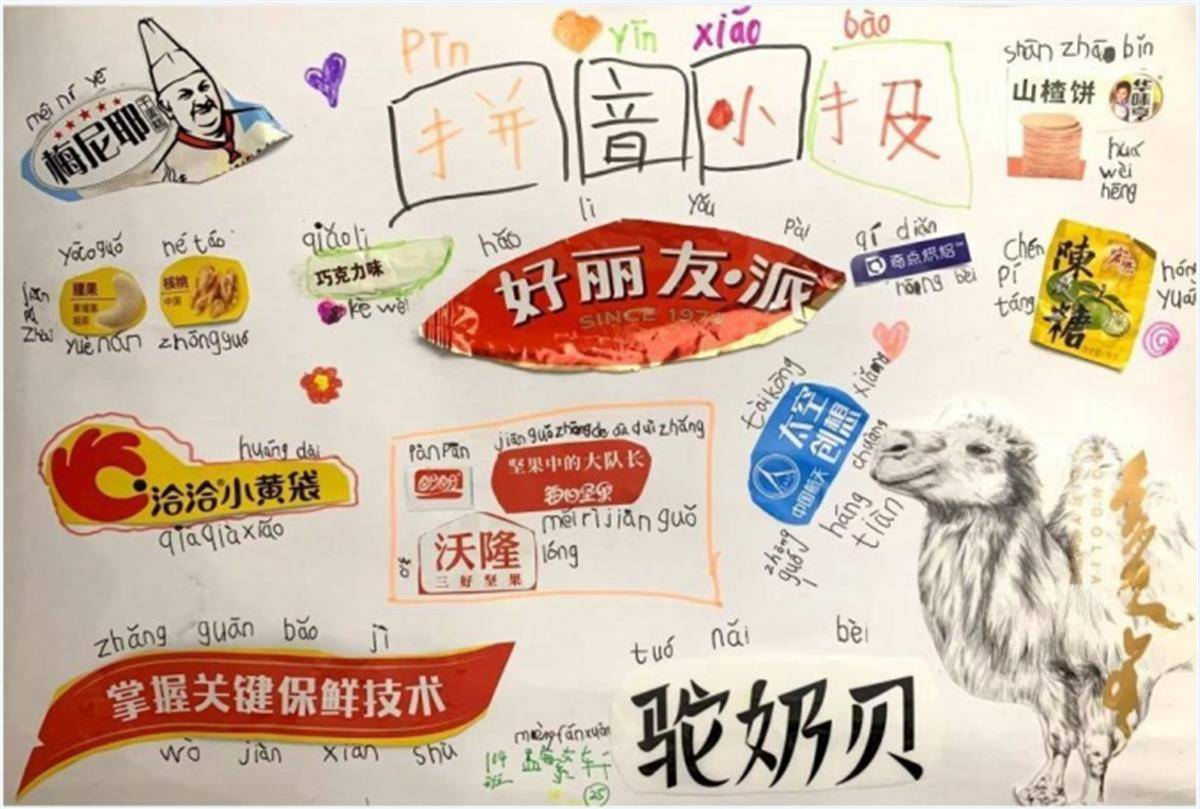 pīn yīn xiǎo bào
拼 音 小 报
měi ní yē
梅尼耶
shān zhā bǐn
山楂饼
华味亨
huá
wèi
hēng
yāoguǒ
腰果
yuènán
hé táo
核桃
中国
zhōngguó
qiǎo li
巧克力味
kè wèi
li yǒu
hǎo pài
好丽友·派
SINCE 1974
qí diǎn
奇点烘焙
hōng bèi
chén
pí
táng
陳
糖
huáng dài
洽洽小黄袋
qià qià xiǎo
pànpān
盼盼
jiān guǒ zhōng de dà duì zhǎng
坚果中的大队长
每日坚果
měi rì jiān guǒ
沃隆
lóng
三好坚果
tài kōng
太空
创想
chuàng
xiǎng
中国航天
zhōng
guó
háng
tiān
zhǎng guān bǎo jì
掌握关键保鲜技术
wò jiàn xiān shù
tuó nǎi bèi
驼奶贝
104
班
25